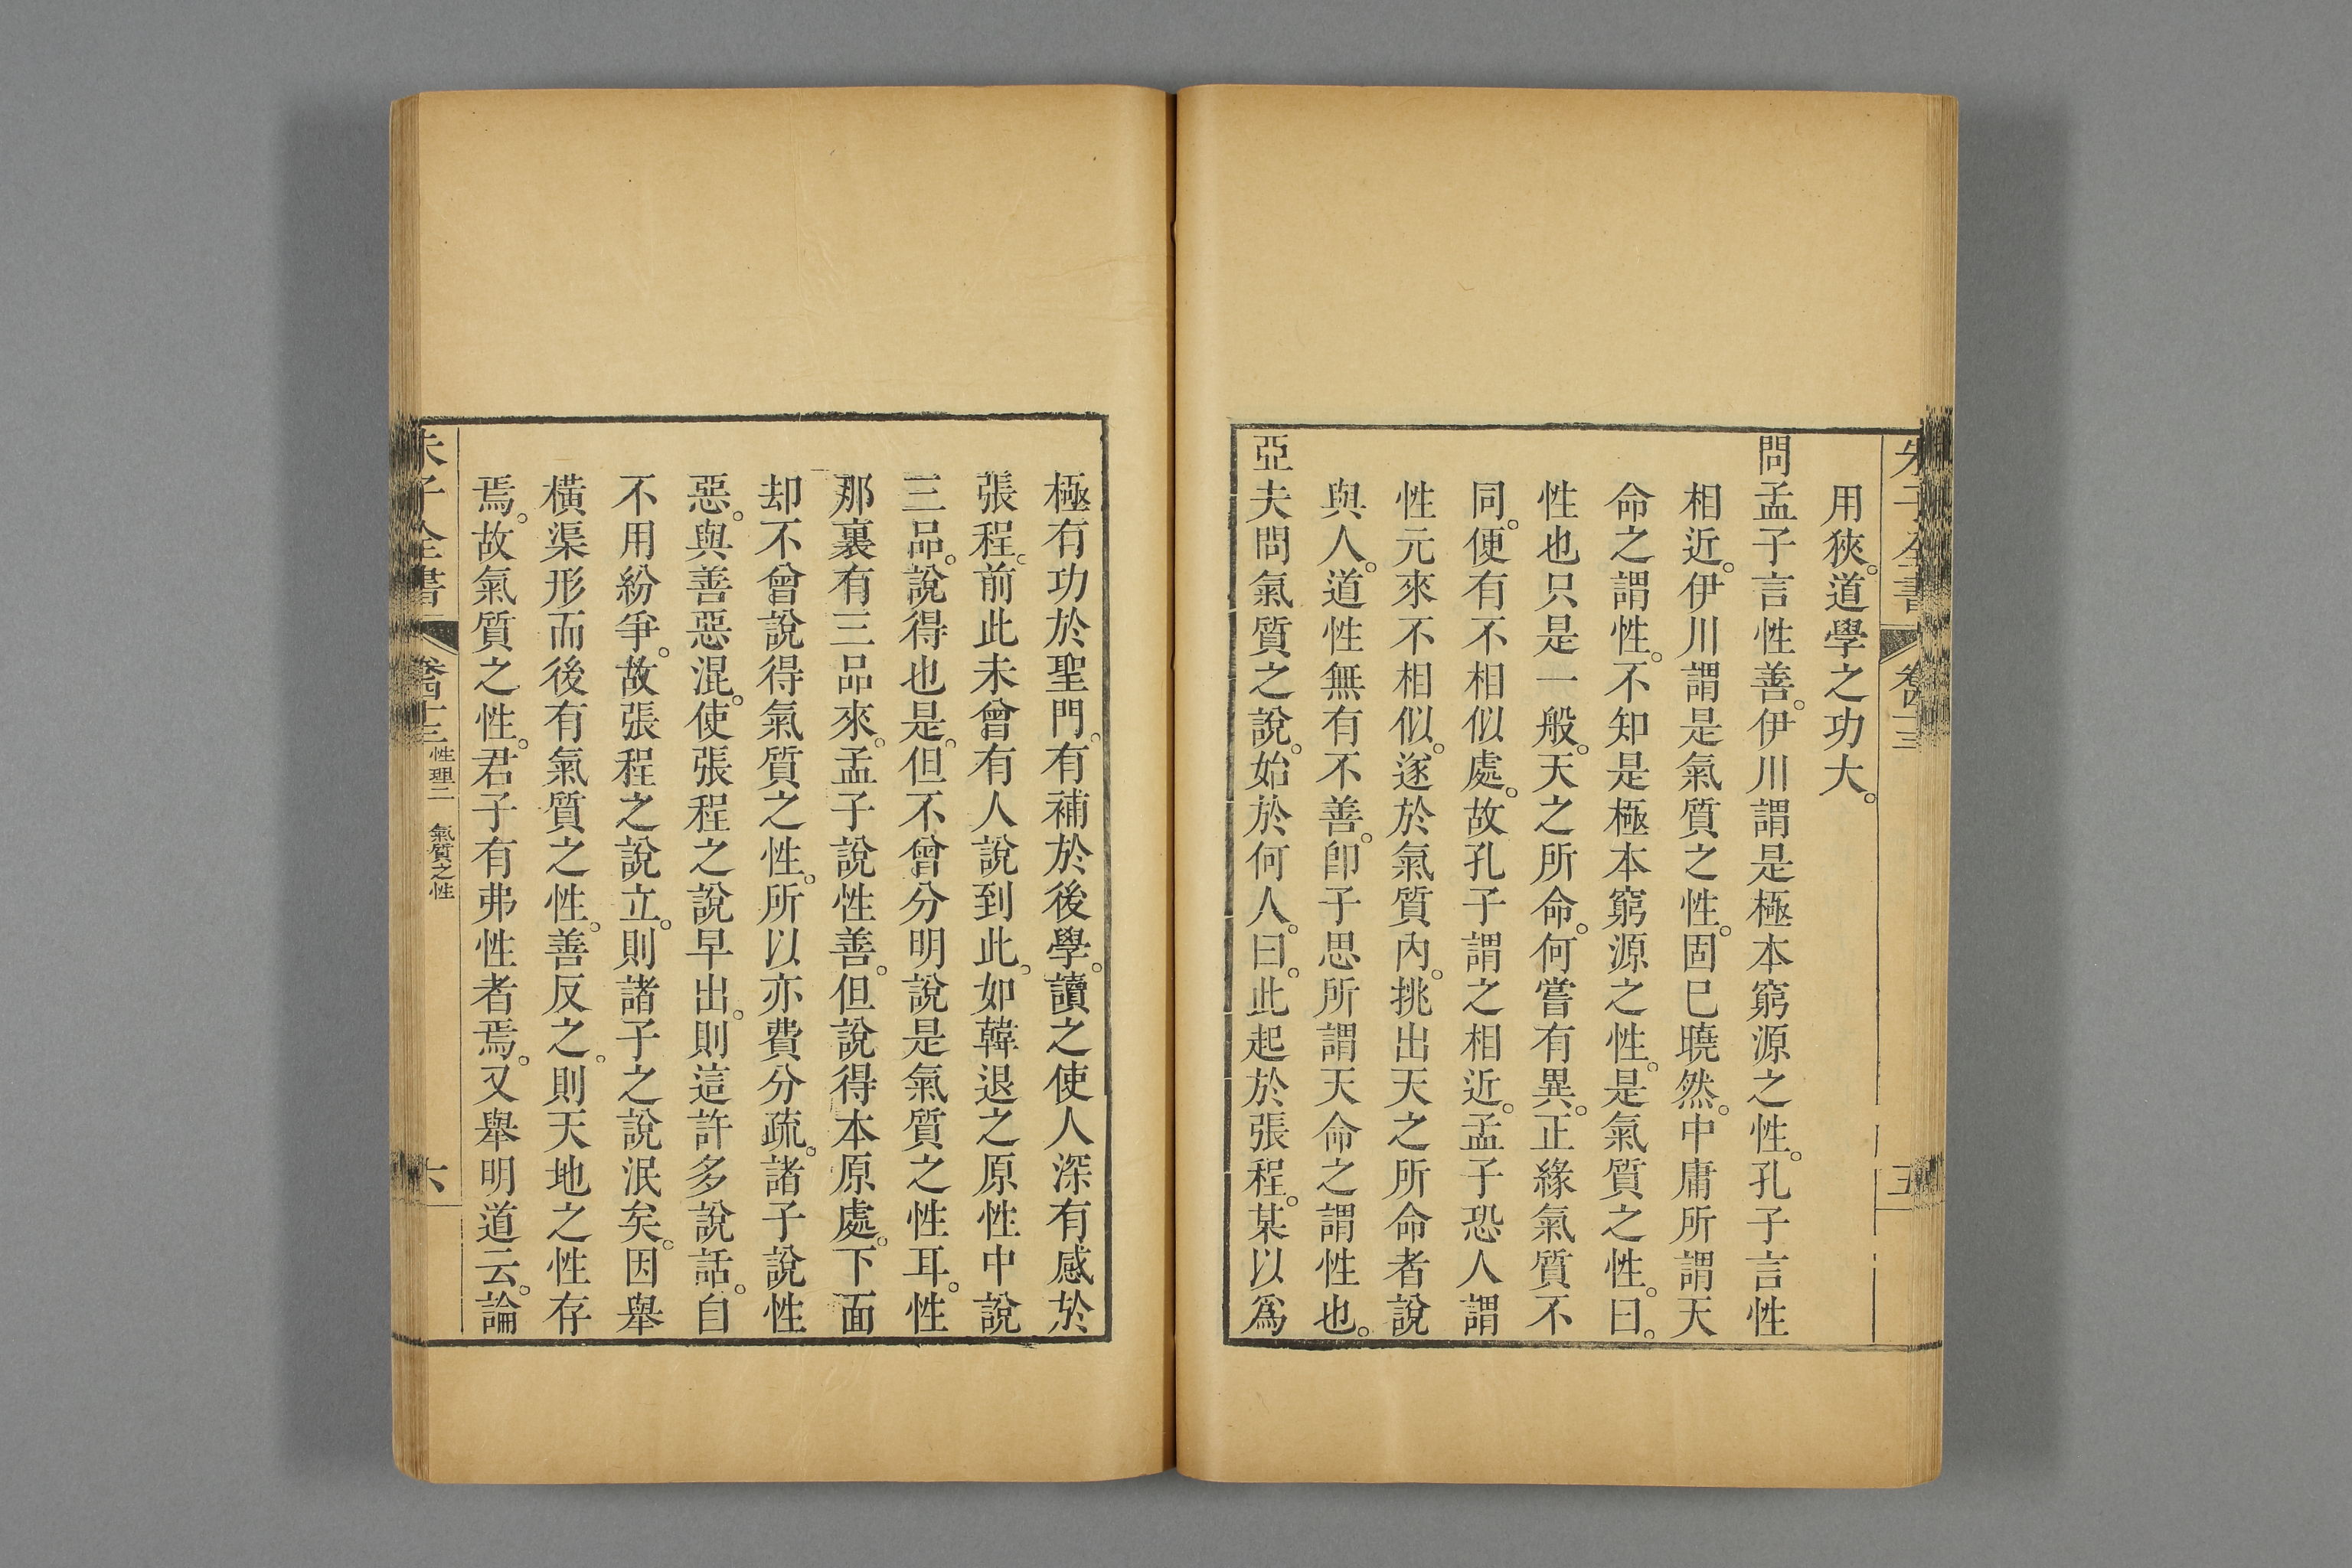 朱子全書 卷四十三 五
用狹。道學之功大。
問孟子言性善。伊川謂是極本窮源之性。孔子言性
相近。伊川謂是氣質之性。固已曉然。中庸所謂天
命之謂性。不知是極本窮源之性。是氣質之性。曰。
性也只是一般。天之所命。何嘗有異。正緣氣質不
同。便有不相似處。故孔子謂之相近。孟子恐人謂
性元來不相似。遂於氣質內。挑出天之所命者說
與人。道性無有不善。卽子思所謂天命之謂性也。
亞夫問氣質之說。始於何人。曰。此起於張程。某以爲
極有功於聖門。有補於後學。讀之使人深有感於
張程。前此未曾有人說到此。如韓退之原性中說
三品。說得也是。但不曾分明說是氣質之性耳。性
那裏有三品來。孟子說性善。但說得本原處。下面
却不曾說得氣質之性。所以亦費分疏。諸子說性
惡。與善惡混。使張程之說早出。則這許多說話。自
不用紛爭。故張程之說立。則諸子之說泯矣。因舉
橫渠形而後有氣質之性。善反之。則天地之性存
焉。故氣質之性。君子有弗性者焉。又舉明道云。論
朱子全書 卷四十三 性理二 氣質之性 六